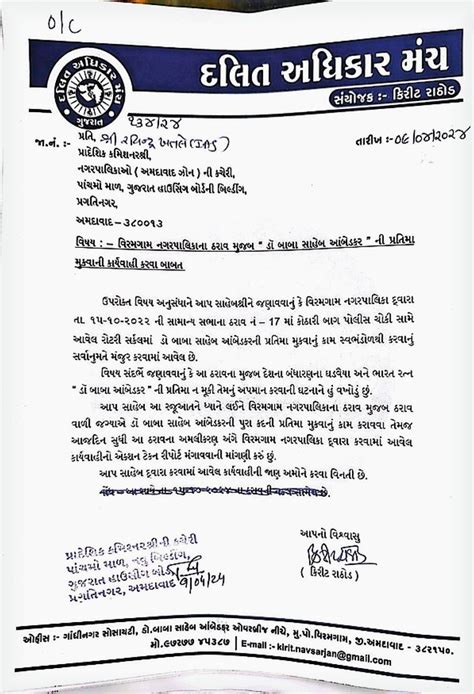 O/C
દલિત અધિકાર મંચ
ગુજરાત
દલિત અધિકાર મંચ
સંયોજક :- કિરીટ રાઠોડ
૧૩૪/૨૪
જા.નં. :-
તારીખ :- ૦૯/૦૪/૨૦૨૪
પ્રતિ, શ્રી રવિન્દ્ર ખતલે (IAS)
પ્રાદેશિક કમિશનરશ્રી,
નગરપાલિકાઓ ( અમદાવાદ ઝોન ) ની કચેરી,
પાંચમો માળ, ગુજરાત હાઉસિંગ બોર્ડની બિલ્ડીંગ,
પ્રગતિનગર,
અમદાવાદ – ૩૮૦૦૧૩
વિષય : – વિરમગામ નગરપાલિકાના ઠરાવ મુજબ " ડૉ બાબા સાહેબ આંબેડકર " ની પ્રતિમા
મુકવાની કાર્યવાહી કરવા બાબત
ઉપરોક્ત વિષય અનુસંધાને આપ સાહેબશ્રીને જણાવવાનું કે વિરમગામ નગરપાલિકા દ્વારા
તા. ૧૫-૧૦-૨૦૨૨ ની સામાન્ય સભાના ઠરાવ નં – 17 માં કોઠારી બાગ પોલીસ ચોકી સામે
આવેલ રોટરી સર્કલમાં ડૉ બાબા સાહેબ આંબેડકરની પ્રતિમા મુકવાનું કામ સ્વભંડોળથી કરવાનું
સર્વાનુમતે મંજુર કરવામાં આવેલ છે.
વિષય સંદર્ભે જણાવવાનું કે આ ઠરાવના મુજબ દેશના બંધારણના ઘડવૈયા અને ભારત રત્ન
" ડૉ બાબા આંબેડકર " ની પ્રતિમા ન મૂકી તેમનું અપમાન કરવાની ઘટનાને હું વખોડું છું.
આપ સાહેબ આ રજૂઆતને ધ્યાને લઈને વિરમગામ નગરપાલિકાના ઠરાવ મુજબ ઠરાવ
વાળી જગ્યાએ ડૉ બાબા સાહેબ આંબેડકરની પુરા કદની પ્રતિમા મુકવાનું કામ કરાવવા તેમજ
આજદિન સુધી આ ઠરાવના અમલીકરણ અંગે વિરમગામ નગરપાલિકા દ્વારા કરવામાં આવેલ
કાર્યવાહીનો એક્શન ટેકન રીપોર્ટ મંગાવવાની માંગણી કરું છું.
આપ સાહેબ દ્વારા કરવામાં આવેલ કાર્યવાહીની જાણ અમોને કરવા વિનતી છે.
આપનો વિશ્વાસુ
( કિરીટ રાઠોડ )
પ્રાદેશિક કમિશનરશ્રીની કચેરી
પાંચમો માળ, નવુ બિલ્ડીંગ,
ગુજરાત હાઉસીંગ બોર્ડ
પ્રગતિનગર, અમદાવાદ
9/04/24
ઓફીસ :- ગાંધીનગર સોસાયટી, ડૉ.બાબા સાહેબ આંબેડકર ઓવરબ્રીજ નીચે, મુ.પો.વિરમગામ, જી.અમદાવાદ - ૩૮૨૧૫૦.
મો.૯૭૨૭૭ ૪૫૩૮૭ | E-mail :- kirit.navsarjan@gmail.com